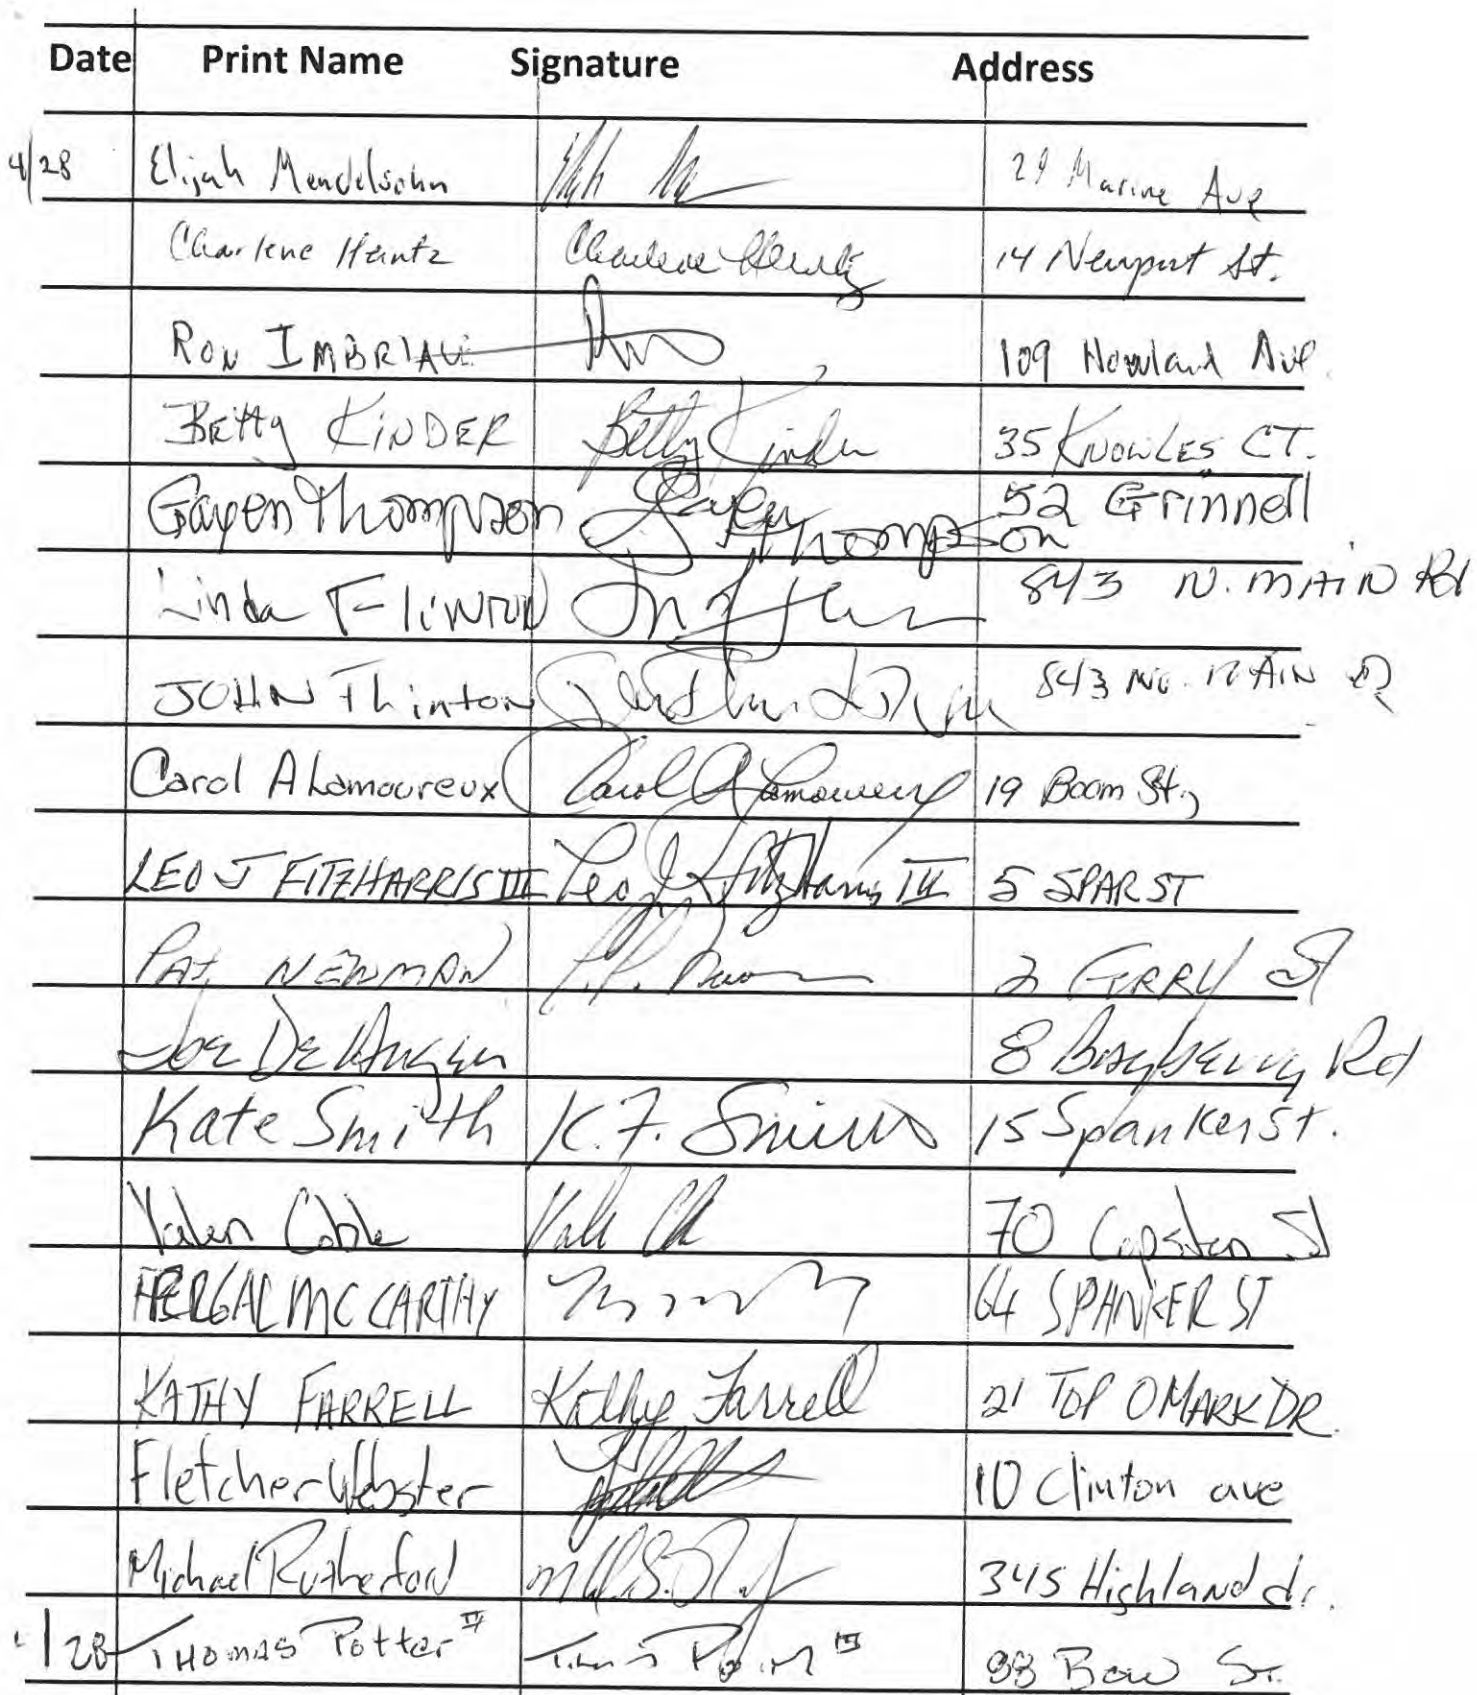 Date Print Name Signature Address
4/28 Elijah Mendelsohn 29 Marine Ave
Charlene Heintz Charlene Heintz 14 Newport St.
RON IMBRIALE 109 Howland Ave.
Betty KINDER Betty Kinder 35 KNOWLES CT.
Gayen Thompson Gayen Thompson 52 Grinnell
Linda FliNTON 843 N. MAIN Rd
JOHN Flinton 843 NO. MAIN RD
Carol A Lamoureux Carol A Lamoureux 19 Boom St,
LEO J FITZHARRIS III Leo J Fitzharris III 5 SPAR ST
PAT NEWMAN P.P. 2 GERRY St
Joe 8 Bayberry Rd
Kate Smith K.F. Smith 15 Spanker St.
Coble 70 Capstan St
FERGAL MCCARTHY 64 SPANKER ST
KATHY FARRELL Kathy Farrell 21 TOP O MARK DR.
Fletcher Webster 10 Clinton ave
Michael Rutherford 345 Highland dr.
/28 THOMAS Potter III 98 Bow St.